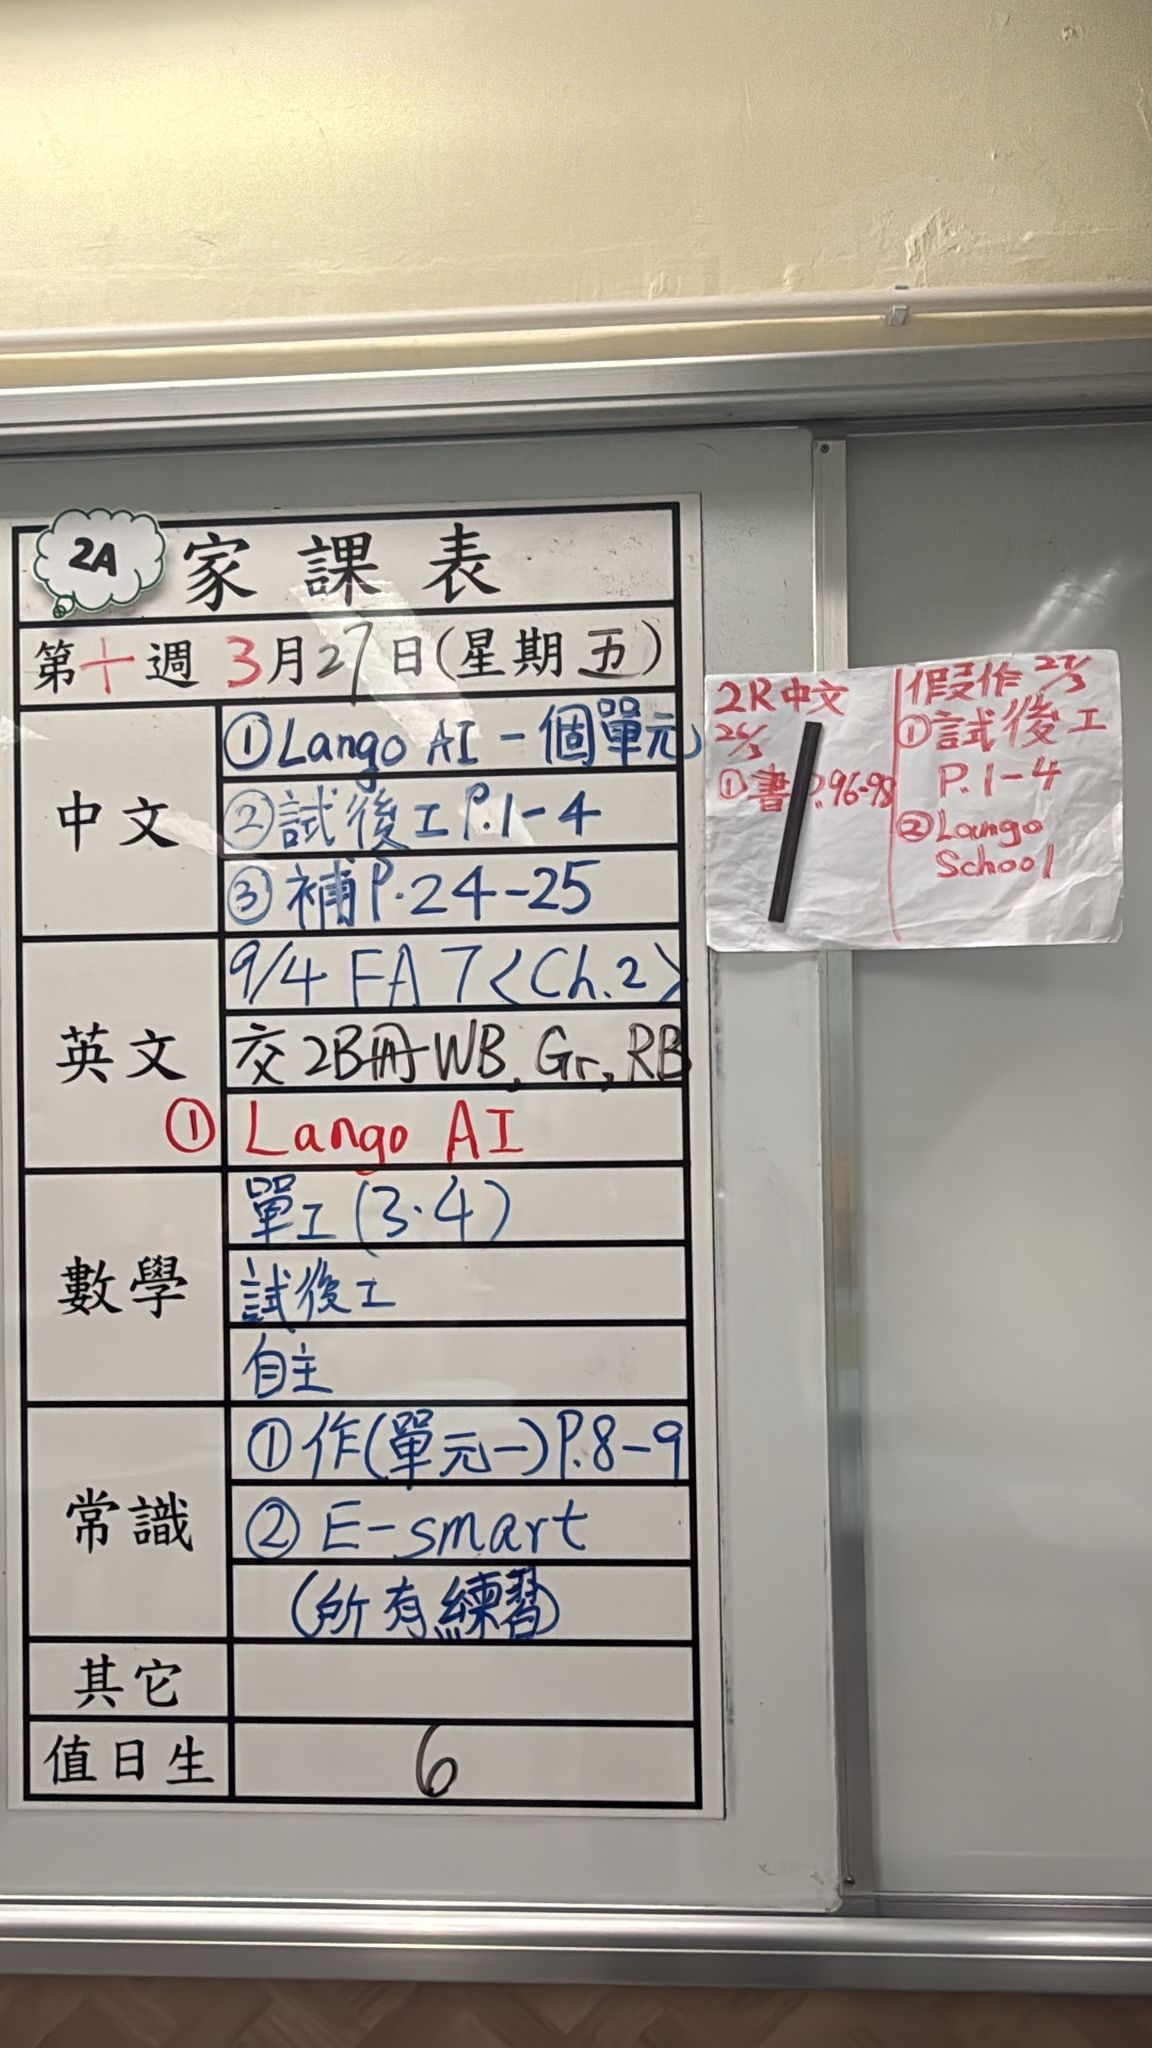 2A
家課表
第十週 3月27日(星期五)
中文
①Lango AI - 個單元
②試後工 P.1-4
③補 P.24-25
英文
9/4 FA 7 <Ch.2>
交 2B冊 WB, Gr, RB
① Lango AI
數學
單工 (3.4)
試後工
自主
常識
①作(單元一) P.8-9
② E-smart
(所有練習)
其它
值日生
6
2R 中文
26/3
①書 P.96-98
假作 27/3
①試後工
P.1-4
②Lango
School